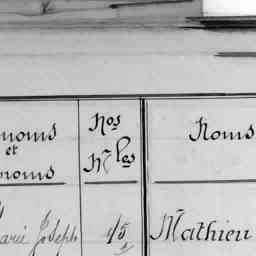 noms
et
noms
Nos
Mles
Noms
arie Joseph
15
Mathieu